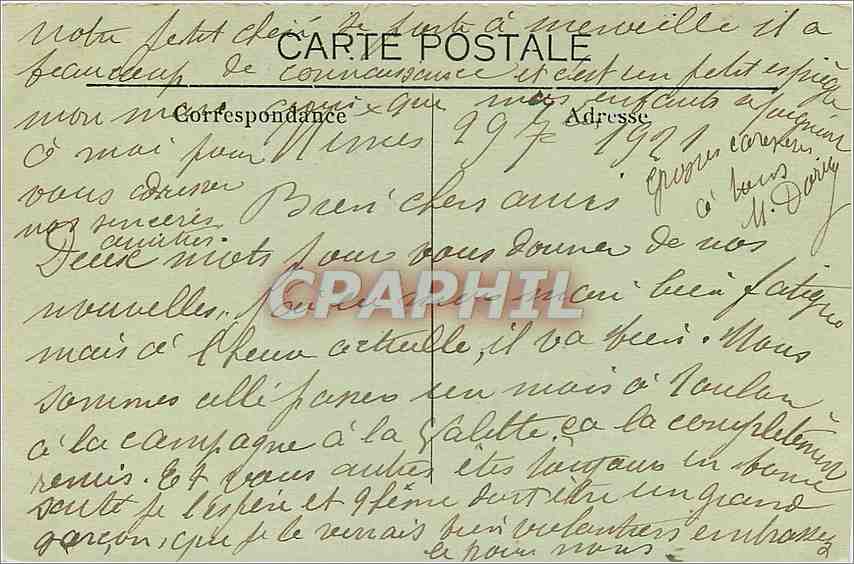 notre petit chéri se porte à merveille il a
CARTE POSTALE
beaucoup de connaissance et c'est un petit espiègle
mon mari que mes enfants se joignent
Correspondance
Adresse
à moi pour
vous adresser
nos sincères
amitiés
Nimes 29 1921
Grosses caresses
à tous
M.
Bien chers amis
Deux mots pour vous donner de nos
nouvelles. mon mari bien fatigué
mais à l'heure actuelle, il va bien. Nous
sommes allé passer un mois à Toulon
à la campagne à la Valette ça la complètement
remis. Et vous autres êtes toujours en bonne
santé je l'espère et doit être un grand
garçon, que je le verrais bien volontiers embrassez
le pour nous.
CPAPHIL